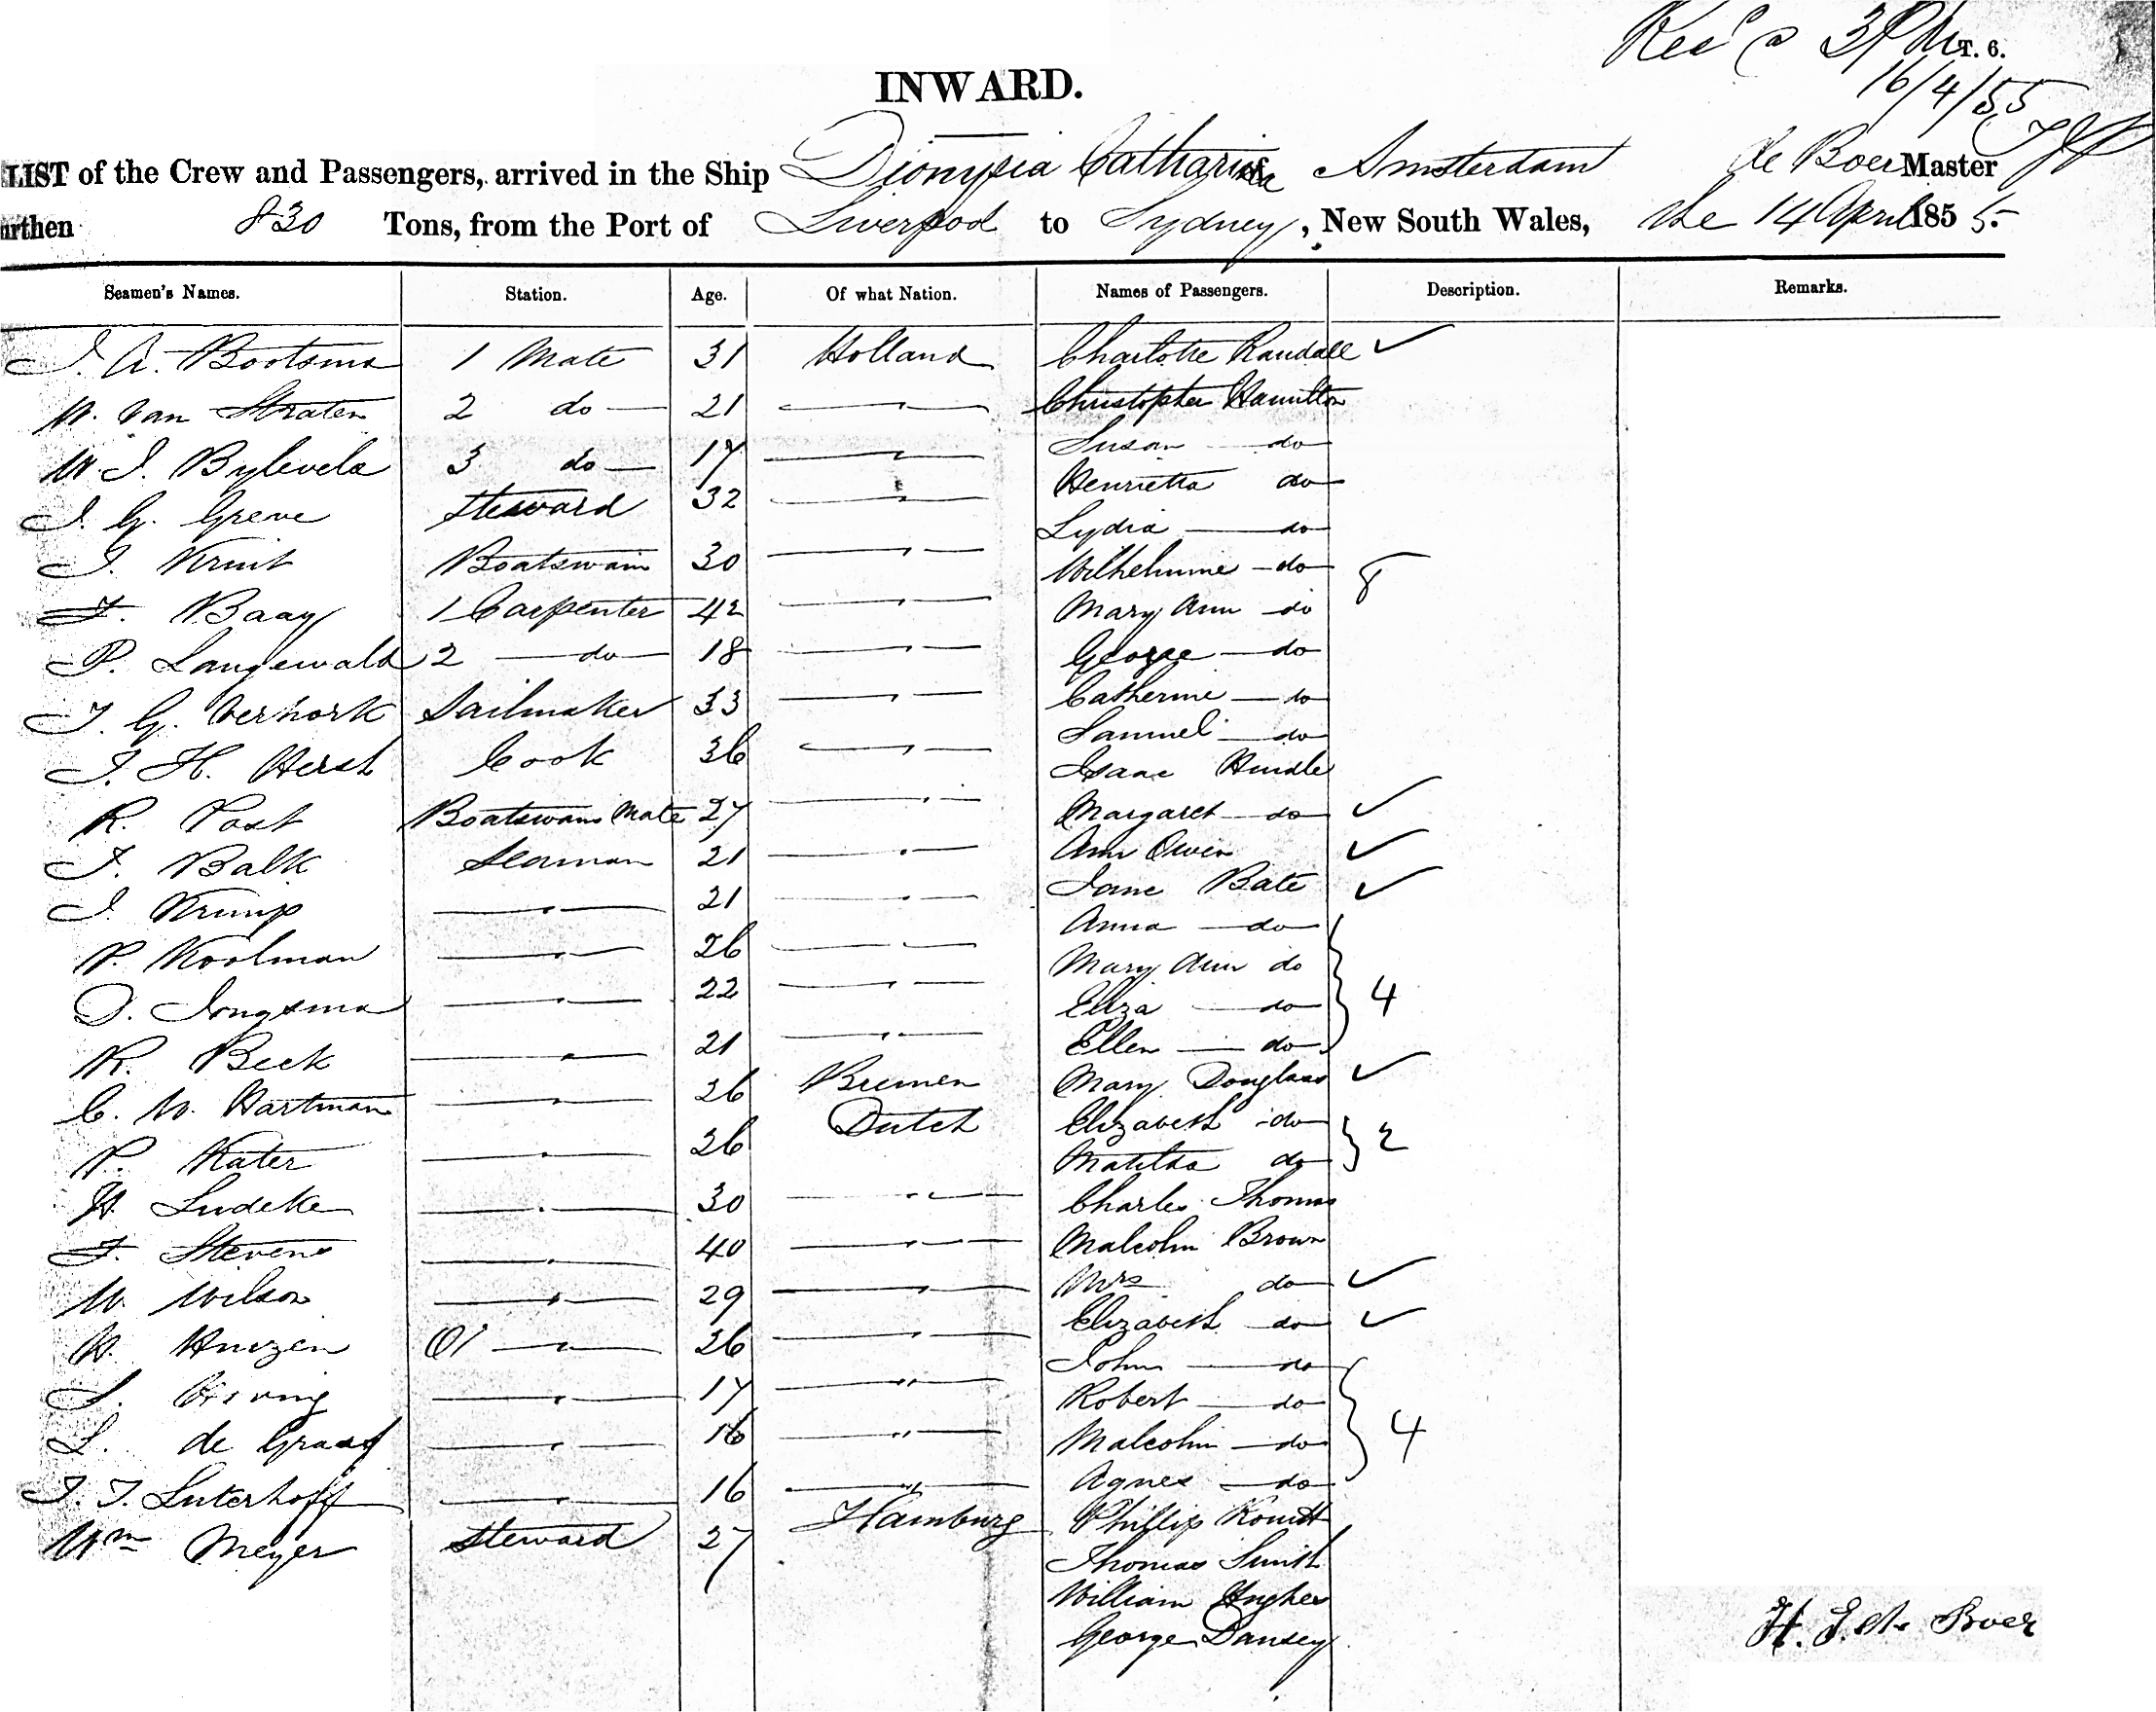 Rec @ 3 PM T. 6.
16/4/55
INWARD.
LIST of the Crew and Passengers, arrived in the Ship Dionysia Catharina of Amsterdam de Boer Master
urthen 830 Tons, from the Port of Liverpool to Sydney, New South Wales, the 14 April 1855.
Seamen's Names. Station. Age. Of what Nation. Names of Passengers. Description. Remarks.
J. A. Bootsma 1 Mate 31 Holland Charlotte Randall ✓
W. van Straten 2 do 21 — " — Christopher Hamilton
W. J. Bylevela 3 do 17 — " — Susan do
J. G. Greve Steward 32 — " — Henrietta do
Lydia do
J. Kruit Boatswain 30 — " — Wilhelmine do 8
F. Baay 1 Carpenter 42 — " — Mary Ann do
P. Langewald 2 do 18 — " — George do
J. G. Verhork Sailmaker 33 — " — Catherine do
Samuel do
J. H. Herst Cook 36 — " — Isaac Hindle
R. Post Boatswans Mate 27 — " — Margaret do ✓
J. Balk Seaman 21 — " — Ann Owen ✓
J. Krump — " — 21 — " — Jane Bate ✓
Anna do
P. Koolman — " — 26 — " — Mary Ann do
D. Jongsma — " — 22 — " — Eliza do 4
R. Beek — " — 21 — " — Ellen do
C. W. Hartman — " — 26 Bremen Mary Douglass ✓
P. Kater — " — 26 Dutch Elizabeth do
Matilda do 2
H. Ludeke — " — 30 — " — Charles Thomas
F. Stevens — " — 40 — " — Malcolm Brown
W. Wilson — " — 29 — " — Mrs do ✓
H. Huizen — " — 26 — " — Elizabeth do ✓
John do
17 — " — Robert do
L. de Graaf — " — 16 — " — Malcolm do 4
J. J. Luterhoff — " — 16 — " — Agnes do
Wm Meyer Steward 27 Hamburg Phillip
Thomas Smith
William Hughes
George Dansey
H. J. de Boer